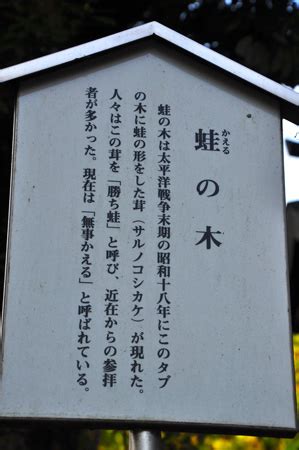 蛙の木
かえる
蛙の木は太平洋戦争末期の昭和十八年にこのタブ
の木に蛙の形をした茸（サルノコシカケ）が現れた。
人々はこの茸を「勝ち蛙」と呼び、近在からの参拝
者が多かった。現在は「無事かえる」と呼ばれている。